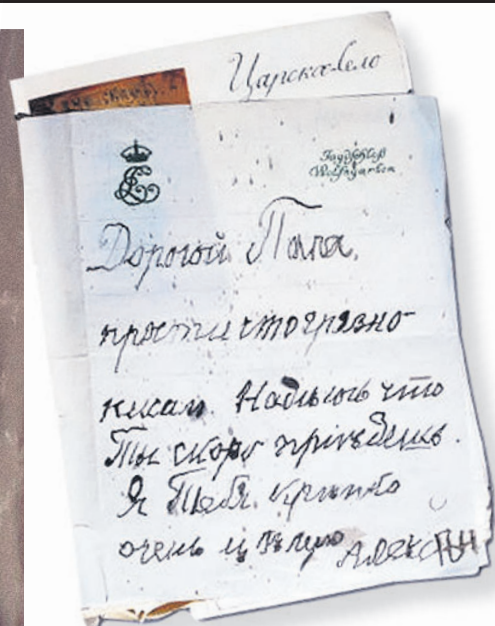 Царское Село
Jagdschloß
Wolfsgarten
Дорогой Папа,
прости что грязно
писал. Надѣюсь что
Ты скоро пріѣдешь.
Я Тебя крѣпко
очень цѣлую Алексѣй